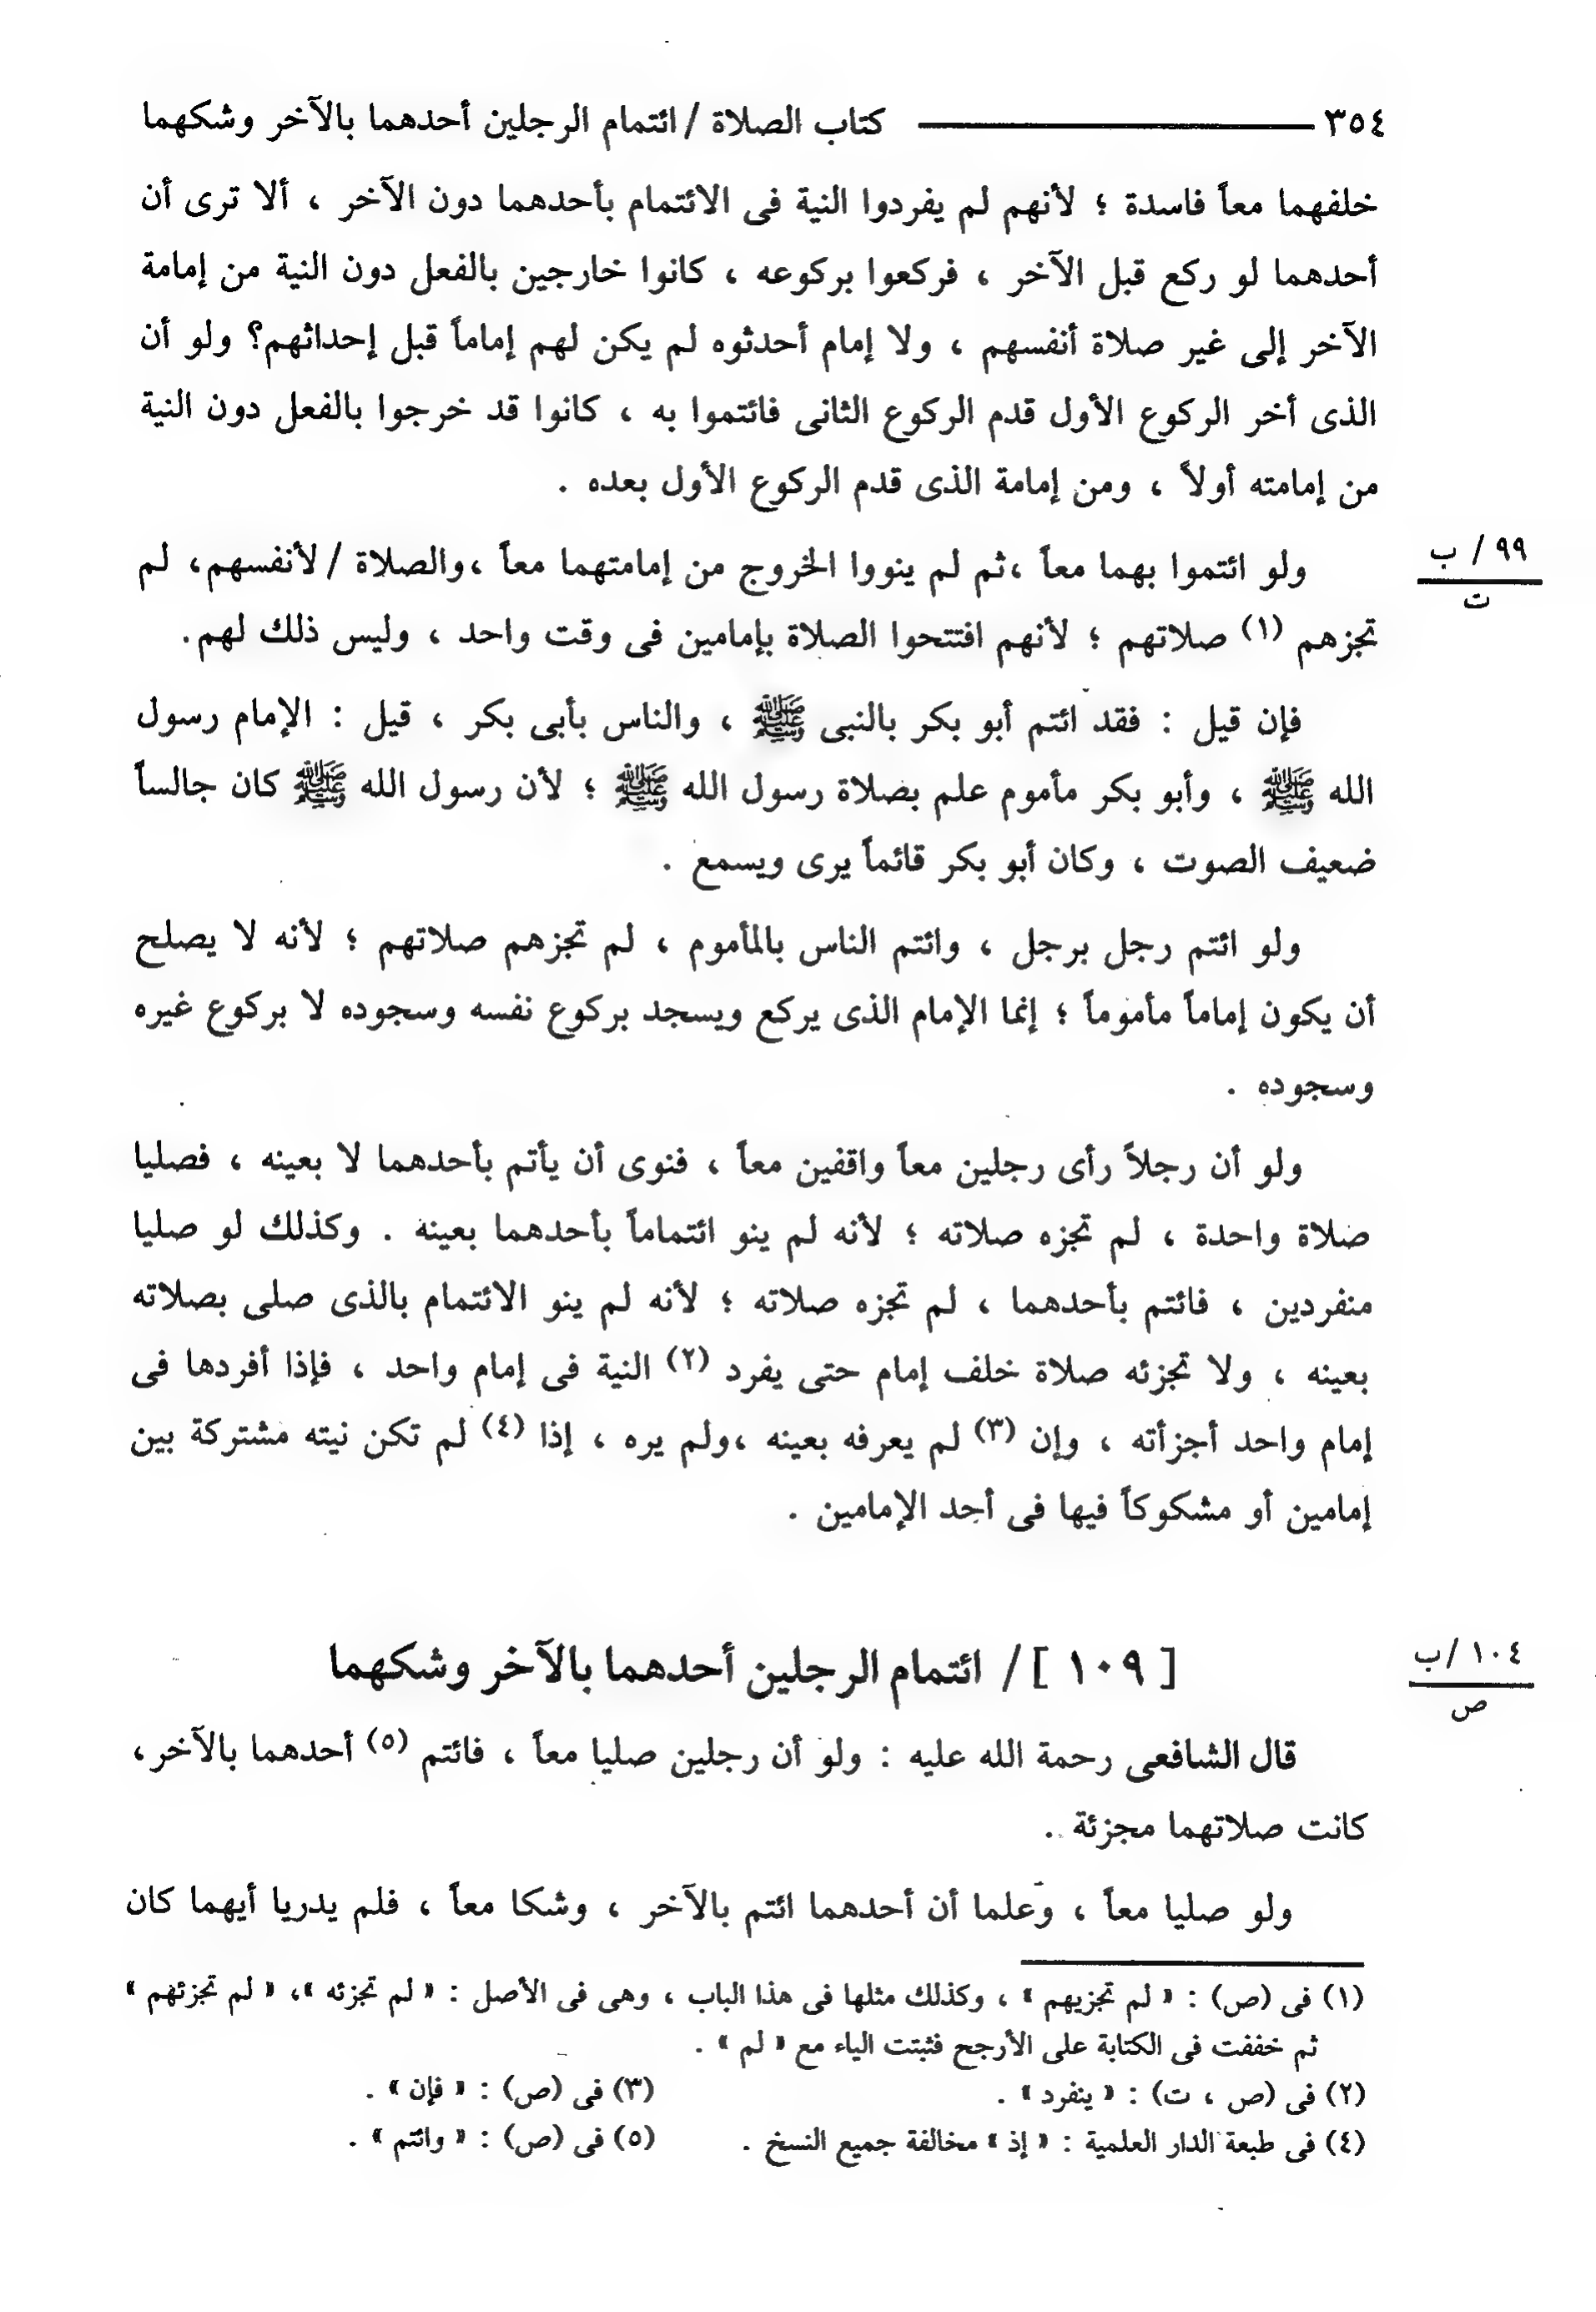 ٣٥٤ ــــــــــــــــ كتاب الصلاة / ائتمام الرجلين أحدهما بالآخر وشكهما
خلفهما معاً فاسدة ؛ لأنهم لم يفردوا النية فى الائتمام بأحدهما دون الآخر ، ألا ترى أن
أحدهما لو ركع قبل الآخر ، فركعوا بركوعه ، كانوا خارجين بالفعل دون النية من إمامة
الآخر إلى غير صلاة أنفسهم ، ولا إمام أحدثوه لم يكن لهم إماماً قبل إحداثهم؟ ولو أن
الذى أخر الركوع الأول قدم الركوع الثانى فائتموا به ، كانوا قد خرجوا بالفعل دون النية
من إمامته أولاً ، ومن إمامة الذى قدم الركوع الأول بعده .
ولو ائتموا بهما معاً ،ثم لم ينووا الخروج من إمامتهما معاً ،والصلاة / لأنفسهم، لم
٩٩ / ب
ت
تجزهم (١) صلاتهم ؛ لأنهم افتتحوا الصلاة بإمامين فى وقت واحد ، وليس ذلك لهم.
فإن قيل : فقد ائتم أبو بكر بالنبى ﷺ ، والناس بأبى بكر ، قيل : الإمام رسول
الله ﷺ ، وأبو بكر مأموم علم بصلاة رسول الله ﷺ ؛ لأن رسول الله ﷺ كان جالساً
ضعيف الصوت ، وكان أبو بكر قائماً يرى ويسمع .
ولو ائتم رجل برجل ، وائتم الناس بالمأموم ، لم تجزهم صلاتهم ؛ لأنه لا يصلح
أن يكون إماماً مأموماً ؛ إنما الإمام الذى يركع ويسجد بركوع نفسه وسجوده لا بركوع غيره
وسجوده .
ولو أن رجلاً رأى رجلين معاً واقفين معاً ، فنوى أن يأتم بأحدهما لا بعينه ، فصليا
صلاة واحدة ، لم تجزه صلاته ؛ لأنه لم ينو ائتماماً بأحدهما بعينه . وكذلك لو صليا
منفردين ، فائتم بأحدهما ، لم تجزه صلاته ؛ لأنه لم ينو الائتمام بالذى صلى بصلاته
بعينه ، ولا تجزئه صلاة خلف إمام حتى يفرد (٢) النية فى إمام واحد ، فإذا أفردها فى
إمام واحد أجزأته ، وإن (٣) لم يعرفه بعينه ،ولم يره ، إذا (٤) لم تكن نيته مشتركة بين
إمامين أو مشكوكاً فيها فى أحد الإمامين .
[ ١٠٩ ] / ائتمام الرجلين أحدهما بالآخر وشكهما
١٠٤ / ب
ص
قال الشافعى رحمة الله عليه : ولو أن رجلين صليا معاً ، فائتم (٥) أحدهما بالآخر،
كانت صلاتهما مجزئة .
ولو صليا معاً ، وعلما أن أحدهما ائتم بالآخر ، وشكا معاً ، فلم يدريا أيهما كان
(١) فى (ص) : « لم تجزيهم » ، وكذلك مثلها فى هذا الباب ، وهى فى الأصل : « لم تجزئه »، « لم تجزئهم »
ثم خففت فى الكتابة على الأرجح فثبتت الياء مع « لم » .
(٢) فى (ص ، ت) : « ينفرد » . (٣) فى (ص) : « فإن » .
(٤) فى طبعة الدار العلمية : « إذ » مخالفة جميع النسخ . (٥) فى (ص) : « وائتم » .